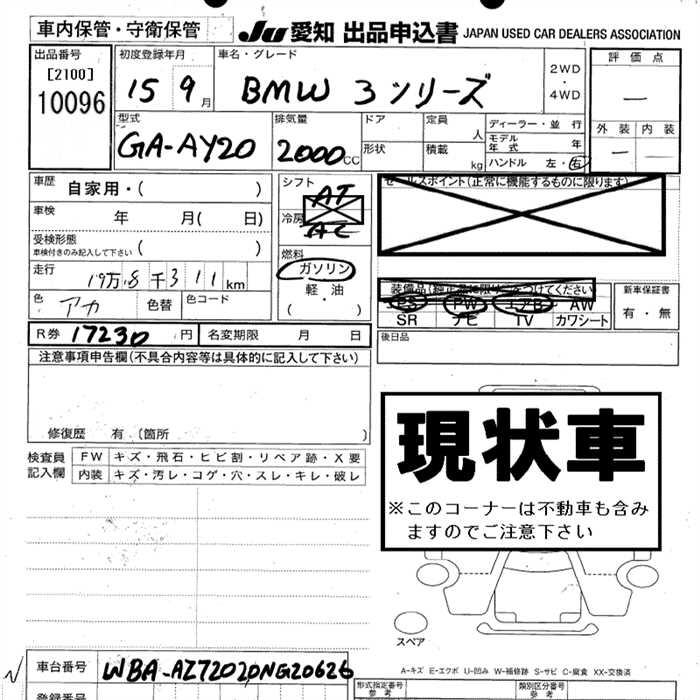 車内保管・守衛保管
JU 愛知 出品申込書 JAPAN USED CAR DEALERS ASSOCIATION
出品番号
[2100]
10096
初度登録年月
15 9月
車名・グレード
BMW 3シリーズ
2WD
・
4WD
評価点
—
外装 内装
— —
型式
GA-AY20
排気量
2000CC
ドア
形状
定員
人
積載
kg
ディーラー・並行
モデル年式 年
ハンドル 左・右
車歴 自家用・( )
車検 年 月( 日)
受検形態
車検付きのみ記入して下さい ( )
走行 19万8千311km
色 アカ 色替 色コード
シフト AT
冷房 AC
燃料
ガソリン
・
軽・油
( )
セールスポイント(正常に機能するものに限ります)
装備品(純正品に限り○をつけてください)
PS PW エアB AW
SR ナビ TV カワシート
新車保証書
有・無
後日品
R券 17230円 名変期限 月 日
注意事項申告欄(不具合内容等は具体的に記入して下さい)
修復歴 有 (箇所 )
検査員記入欄
FW キズ・飛石・ヒビ割・リペア跡・X要
内装 キズ・汚レ・コゲ・穴・スレ・キレ・破レ
現状車
※このコーナーは不動車も含み
ますのでご注意下さい
スペア
A-キズ E-エクボ U-凹み W-補修跡 S-サビ C-腐食 XX-交換済
車台番号 WBA-AZ72020NG20626
登録番号
形式指定番号
参考
類別区分番号
参考